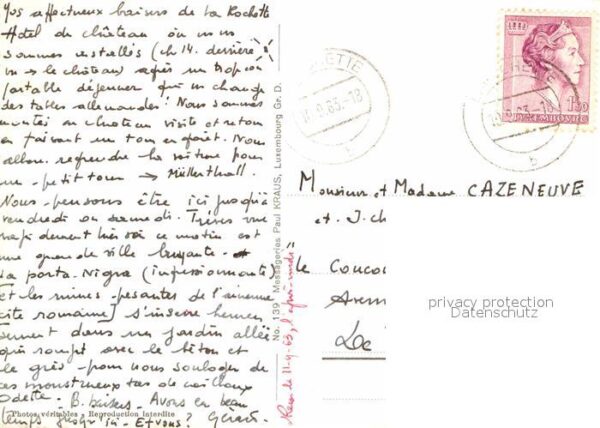 Nos affectueux baisers de La Rochette
Hotel du château où nous
sommes installés (ch 14. derrière
→ le château) après un trop
portable déjeuner qui nous change
des tables allemandes! Nous sommes
montés au château visite et retour
en faisant un tour en forêt. Nous
allons reprendre la voiture pour
un petit tour → Müllerthal.
Nous pensons être ici jusqu'à
vendredi ou samedi. Trèves vue
rapidement hier soir ce matin est
une grande ville bruyante.
La porta Nigra (impressionnante)
et les ruines pesantes de l'ancienne
cité romaine) s'insère
dans un jardin allée
qui rompt avec le béton et
le grès pour nous soulager de
ces monstrueux tas de cailloux
Odette. B. baisers. Avons eu beau
temps jusqu'ici. Et vous? Gérard.
Photos véritables - Reproduction interdite
No. 139 Messageries Paul KRAUS, Luxembourg Gr. D.
Reçu le 11-9-63, l'après-midi
ETIE
9.63-18
9.63-18
b
1.50
LUXEMBOURG
Monsieur et Madame CAZENEUVE
et J.
le
La
privacy protection
Datenschutz